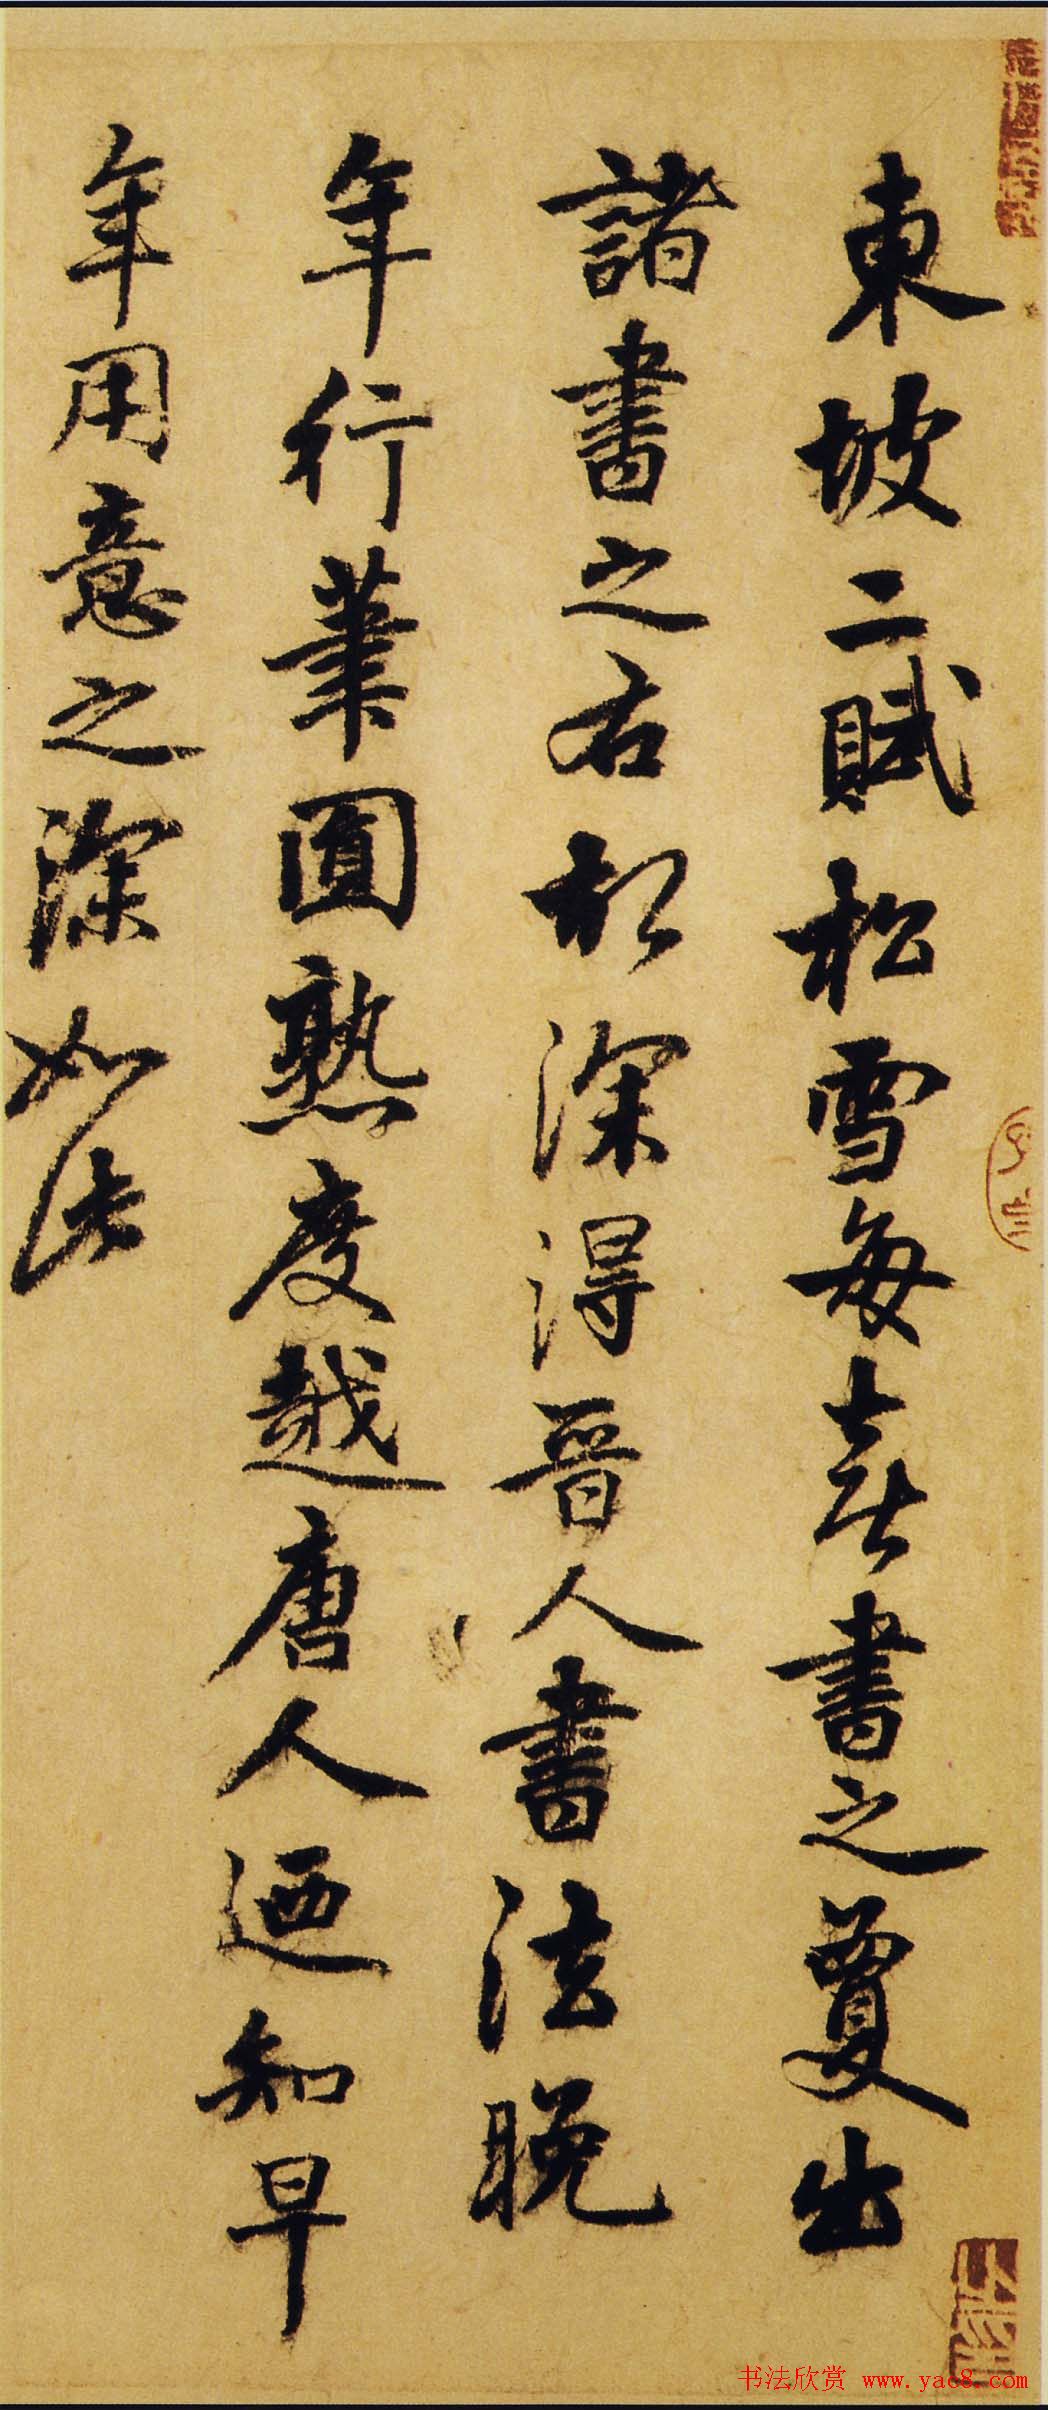 東坡二賦松雪每喜書之夐出
諸書之右於深得晉人書法晚
年行筆圓熟度越唐人迺知早
年用意之深如此
书法欣赏 www.yac8.com